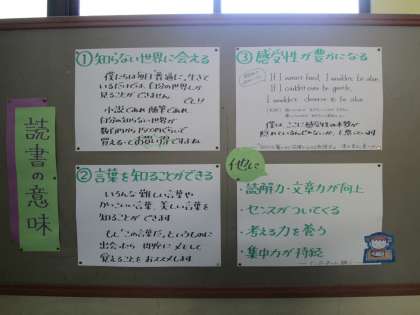 読書の意味
①知らない世界に会える
僕たちは毎日"普通に"生きて
いるだけでは、自分の世界しか
見ることができません
でも!!
小説であれ随筆であれ
自分の知らない世界が
覚えるでお買い得ですよね
②言葉を知ることができる
いろんな難しい言葉や
かっこいい言葉、美しい言葉を
知ることができます
もし"この言葉だ"というものに
出会ったら
覚えることをおススメします
③感受性が豊かになる
If I wasn't hard, I wouldn't be alive.
If I couldn't ever be gentle,
I wouldn't deserve to be alive
僕は、ここに感受性の本質が
隠れているんじゃないか、と思っています
他に
・読解力・文章力が向上
・センスがついてくる
・考える力を養う
・集中力が持続